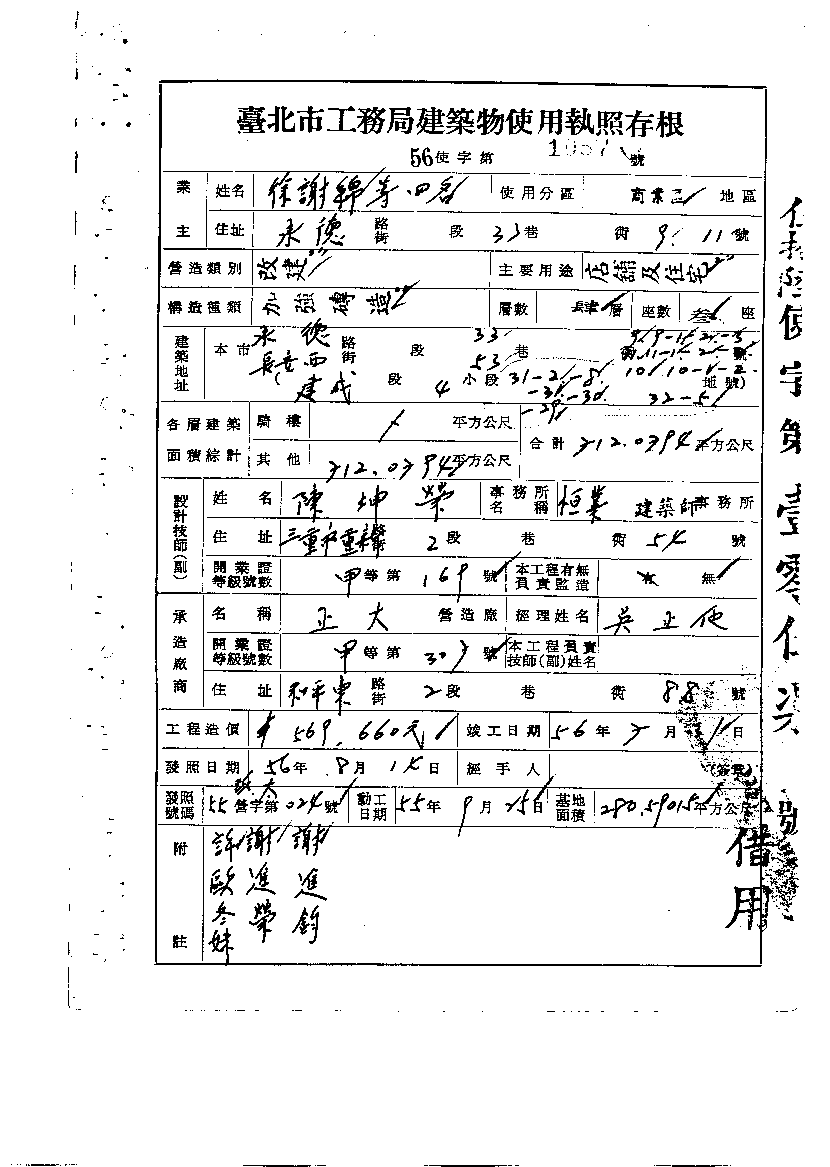 臺北市工務局建築物使用執照存根
56使字第 1057 號
業主 姓名 徐謝綿等四名 使用分區 商業區 地區
住址 永德 路街 段 33巷 街 9. 11號
營造類別 改建 主要用途 店舖及住宅
構造種類 加強磚造 層數 肆層 座數 叁座
建築地址 本市 永德 路街 段 33 巷
長安西 53
建成 段 4 小段 31-2 -8 地號
-31 -30 32-5
-29
各層建築面積綜計 騎樓 平方公尺 合計 平方公尺
其他 平方公尺
設計技師(副) 姓名 陳坤榮 事務所名稱 恒業 建築師事務所
住址 三重市重新路街 2段 巷 街 54 號
開業證等級號數 甲等第 169 號 本工程有無負責監造 無
承造廠商 名稱 正大 營造廠 經理姓名 吳正
開業證等級號數 甲等第 號 本工程負責技師(副)姓名
住址 和平東 路街 2段 巷 街 88 號
工程造價 569,660元 竣工日期 56年 月 日
發照日期 56年 8月 15日 經手人 (簽章)
發照號碼 55 營字第024號 動工日期 55年 9月 25日 基地面積 280.5901 平方公尺
附註 許 謝 謝
歐 進 進
冬 榮 鈞
妹
使字第壹零 號
借用